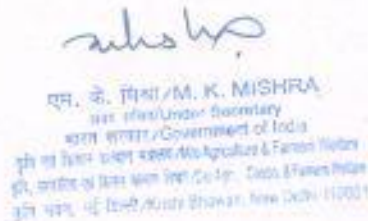 एम. के. मिश्रा/M. K. MISHRA
अवर सचिव/Under Secretary
भारत सरकार/Government of India
कृषि एवं किसान कल्याण /Agriculture & Farmers Welfare
कृषि, & Farmers Welfare
कृषि भवन, नई दिल्ली/Krishi Bhawan, New Delhi-110001